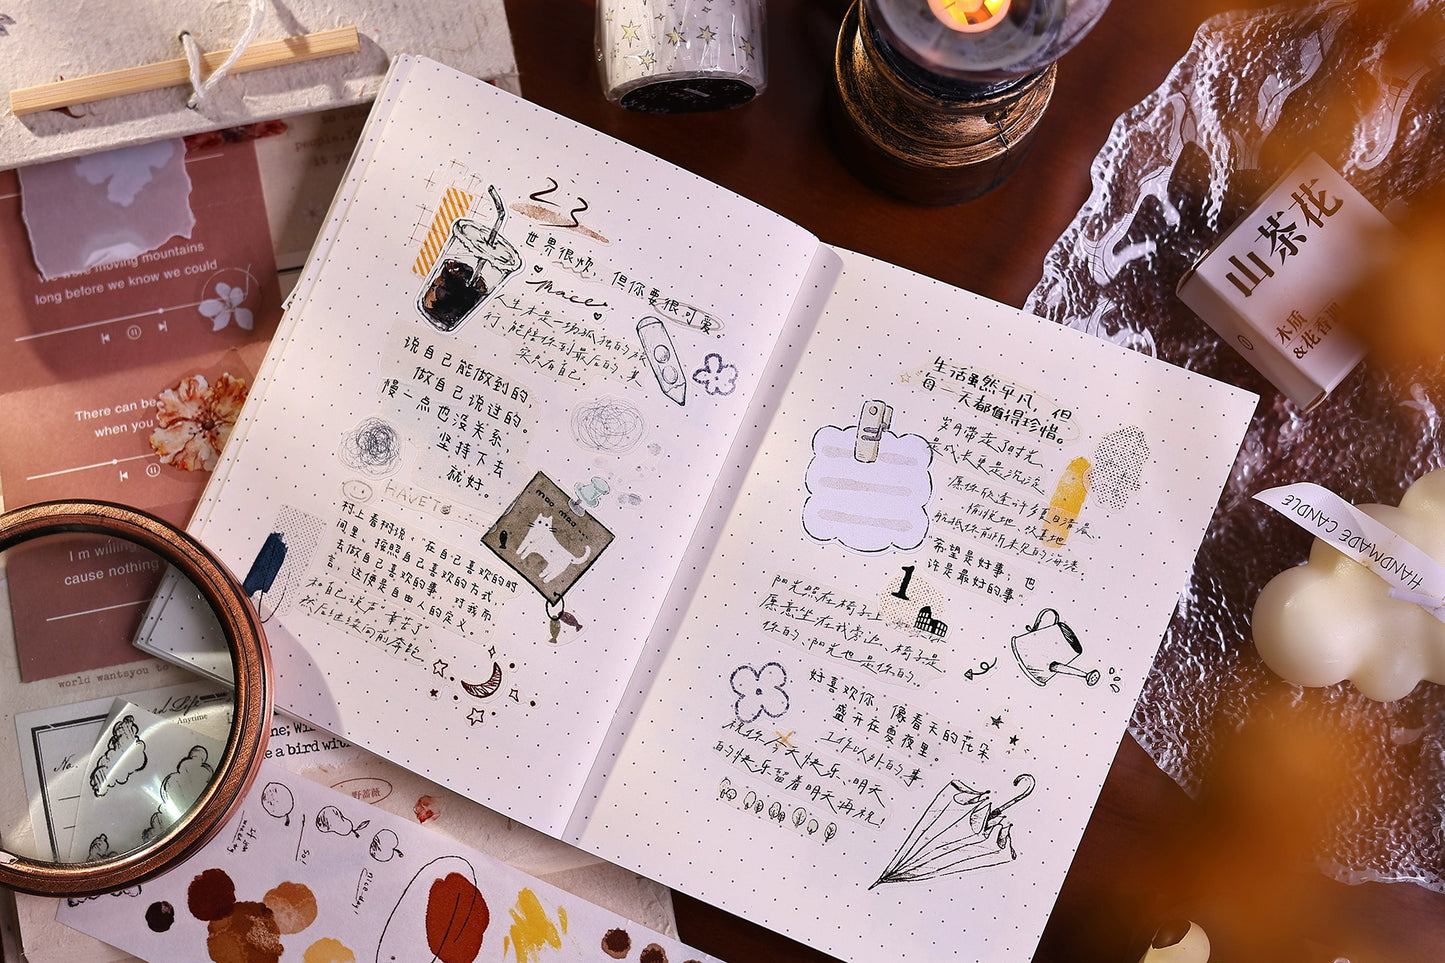 We were moving mountains
long before we know we could
There can be
when you
I m willing
cause nothing
world wantsyou to
Anytime
No.
e a bird with
野蔷薇
nice day!
23
世界很烦，但你要很可爱。
人生本是一场孤独的旅
行，能陪你到最后的，其
实只有自己。
说自己能做到的，
做自己说过的。
慢一点也没关系，
坚持下去
就好。
HAVE
moo moo...
村上春树说，“在自己喜欢的时
间里，按照自己喜欢的方式，
去做自己喜欢的事，对我而
言，这便是自由人的定义。”
和自己说声“辛苦了”
然后继续向前奔跑
生活虽然平凡，但
每一天都值得珍惜。
岁月带走了时光
是成长更是沉淀
愿你欣逢叶夏日清晨、
愉悦地
航抵你前所未见的海港。
“希望是好事，也
许是最好的事。
1
阳光照在椅子上
愿意坐在我旁边，椅子是
你的，阳光也是你的。
好喜欢你，像春天的花朵
盛开在夏夜里。
工作以外的事
祝你今天快乐，明天
的快乐留着明天再祝！
山茶花
木质
&花香调
HANDMADE CANDLE